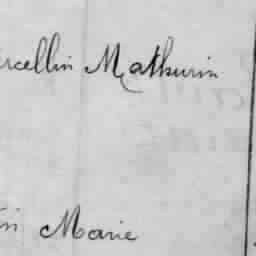 rcellin Mathurin
in Marie